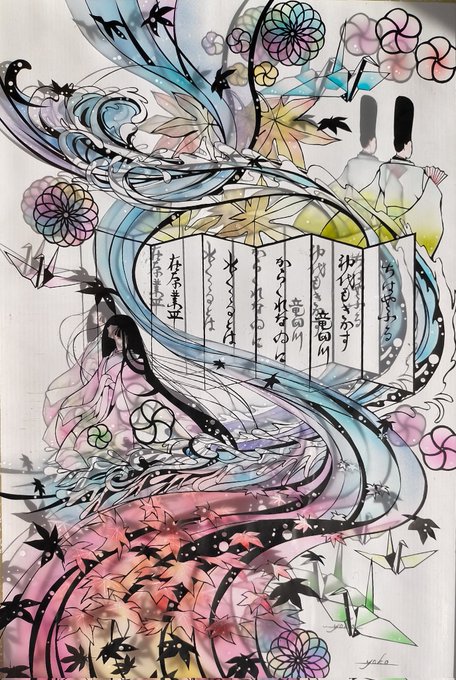 ちはやふる
神代もきかす
竜田川
からくれなゐに
水くゝるとは
在原業平
yoko